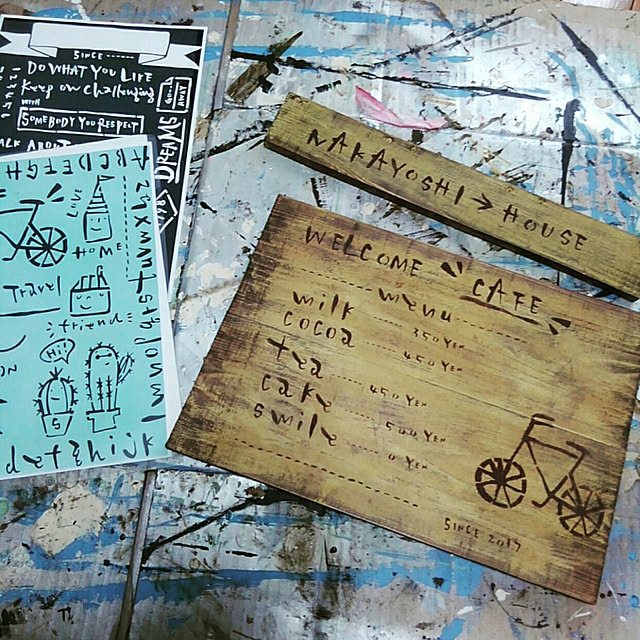 SINCE
DO WHAT YOU LIFE
Keep on challenging
WITH
SOMEBODY YOU RESPECT
DREAMS
ABCDEFGH
LOVE
HOME
Travel
friend
Hi
S
defghijk
NAKAYOSHI → HOUSE
WELCOME CAFE
menu
milk 350 YEN
cocoa 450 YEN
tea 450 YEN
cake 500 YEN
smile 0 YEN
SINCE 2017